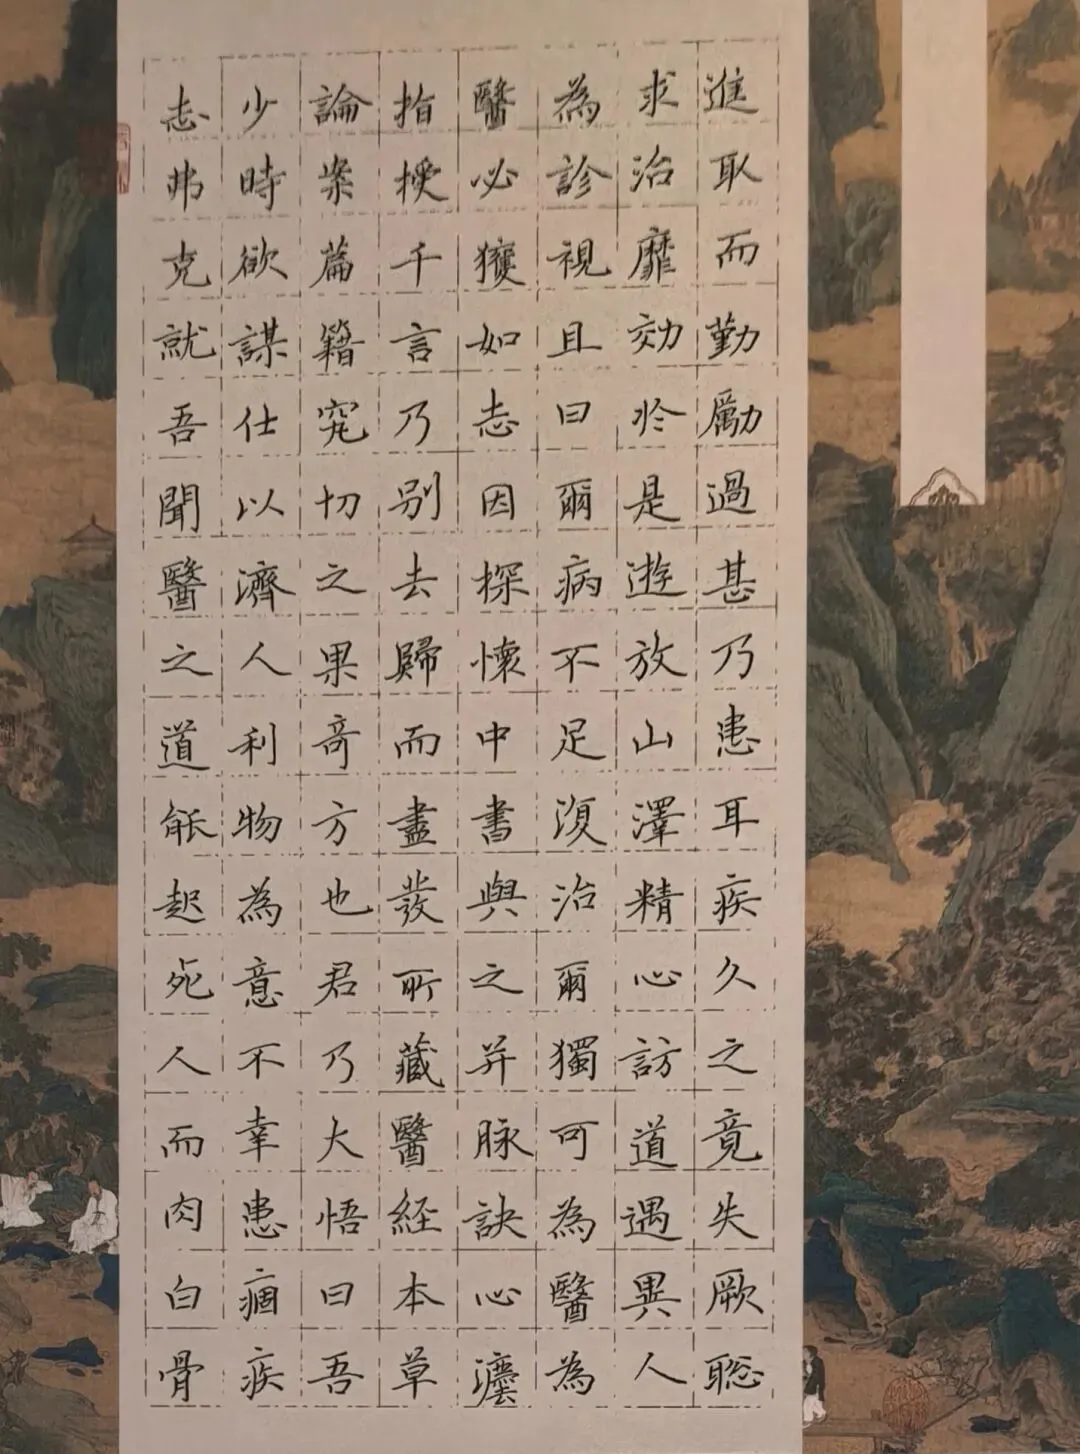 進取而勤勵過甚乃患耳疾久之竟失厥聡
求治靡効於是遊放山澤精心訪道遇異人
為診視且曰爾病不足湏治爾獨可為醫為
醫必獲如志因探懷中書與之并脉訣心灋
指授千言乃別去歸而盡發所藏醫經本草
論案篇籍究切之果奇方也君乃大悟曰吾
少時欲謀仕以濟人利物為意不幸患痼疾
志弗克就吾聞醫之道能起死人而肉白骨